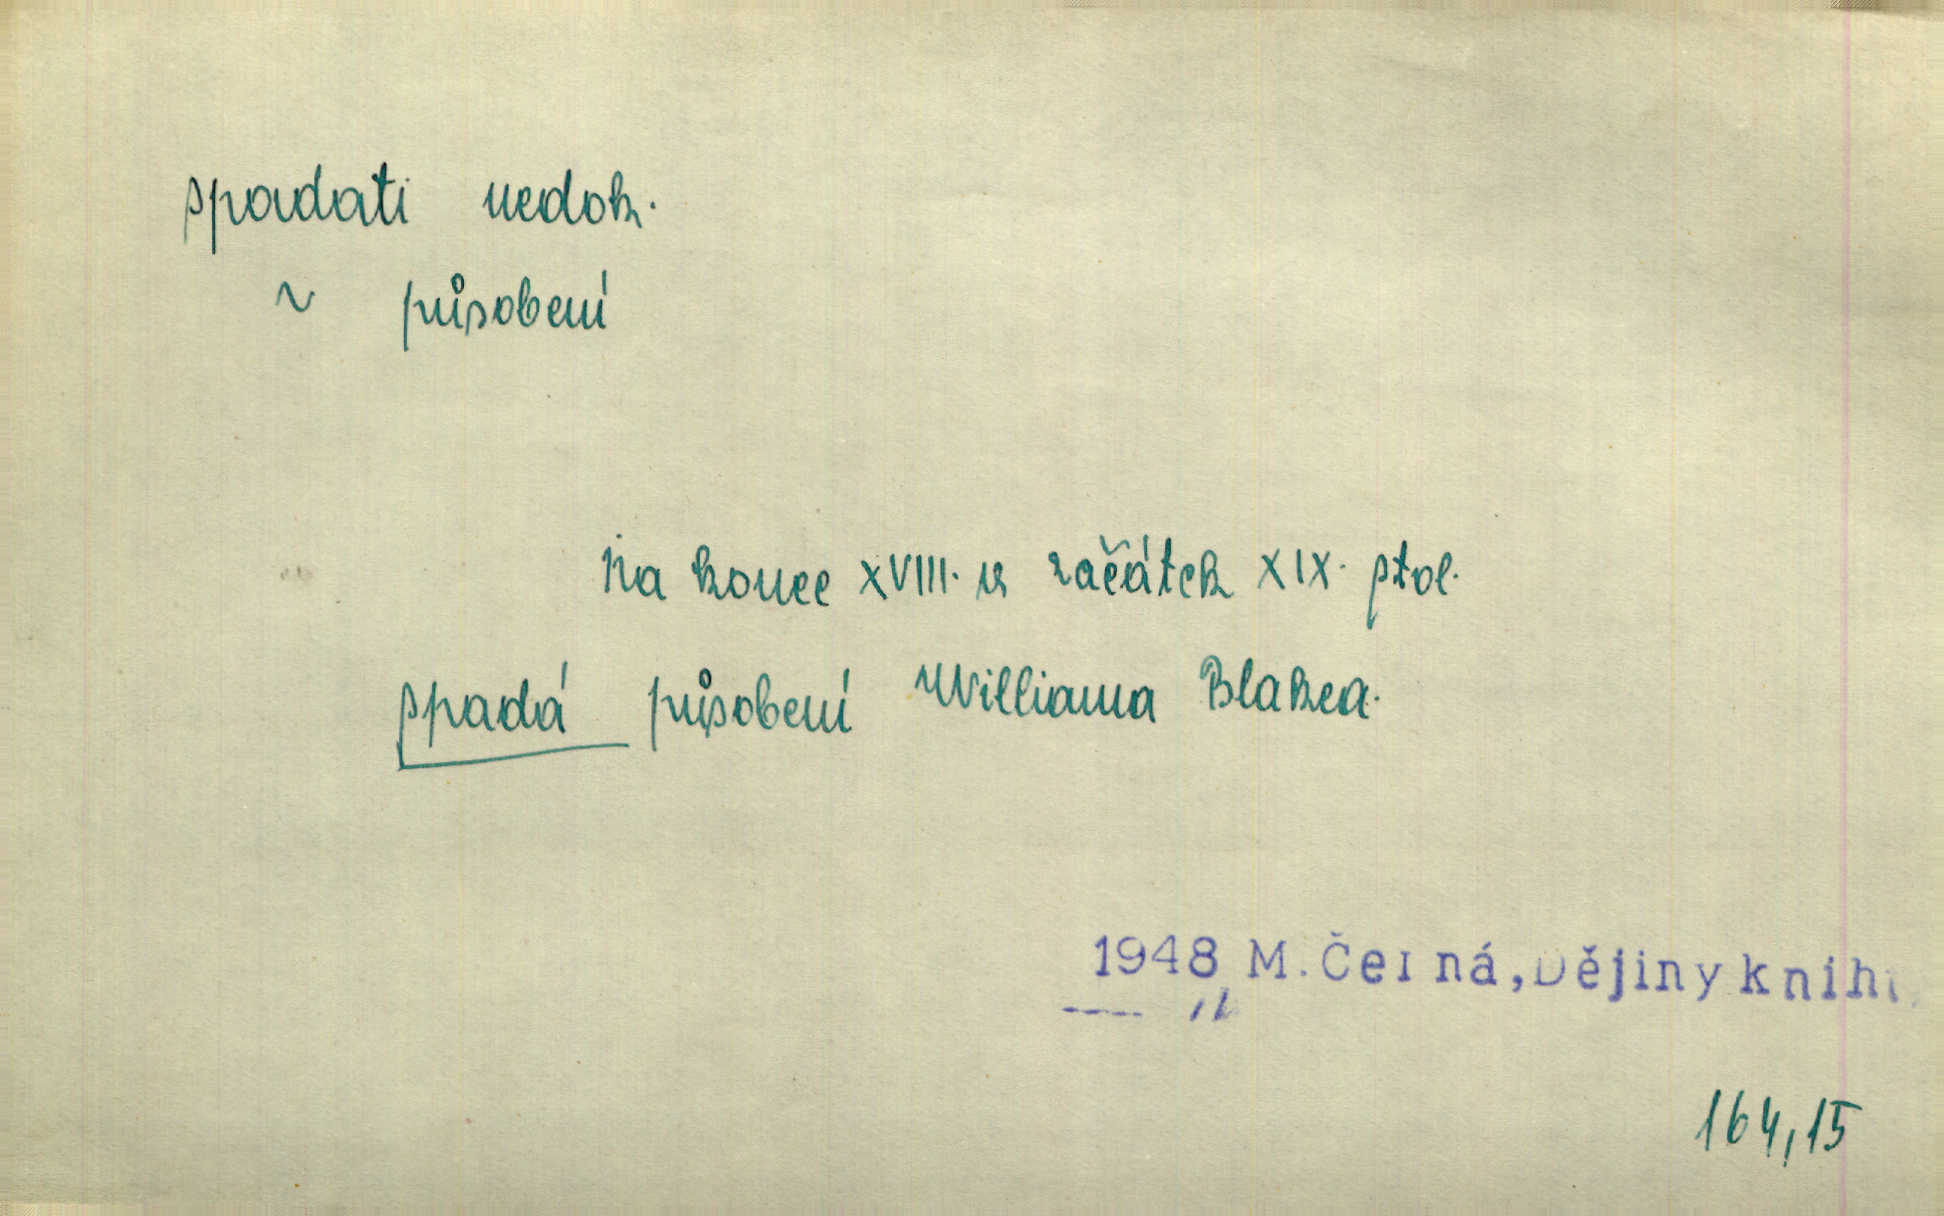 spadati nedok.
~ působení
Na konec XVIII. a začátek XIX. stol.
spadá působení Williama Blakea.
1948 M. Černá, Dějiny knihy
164,15